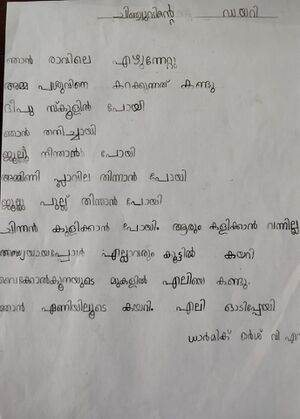 ചിഞ്ചുവിന്റെ ഡയറി
ഞാൻ രാവിലെ എഴുന്നേറ്റു
അമ്മ പശുവിനെ കറക്കുന്നത് കണ്ടു
ദീപു സ്കൂളിൽ പോയി
ഞാൻ തനിച്ചായി
നീന്താൻ പോയി
അമ്മിണി പ്ലാവില തിന്നാൻ പോയി
പുല്ല് തിന്നാൻ പോയി
കളിക്കാൻ പോയി. ആരും കളിക്കാൻ വന്നില്ല
എല്ലാവരും കൂട്ടിൽ കയറി
വൈക്കോൽകൂനയുടെ മുകളിൽ എലിയെ കണ്ടു.
ഞാൻ ഏണിയിലൂടെ കയറി. എലി ഓടിപ്പോയി
ധാർമിക് ദർശ് വി എസ്